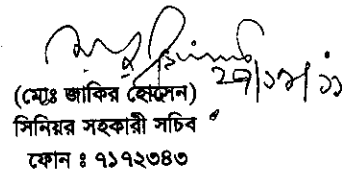 (মোঃ জাকির হোসেন)
সিনিয়র সহকারী সচিব
ফোন : ৭১৭২৩৪৩